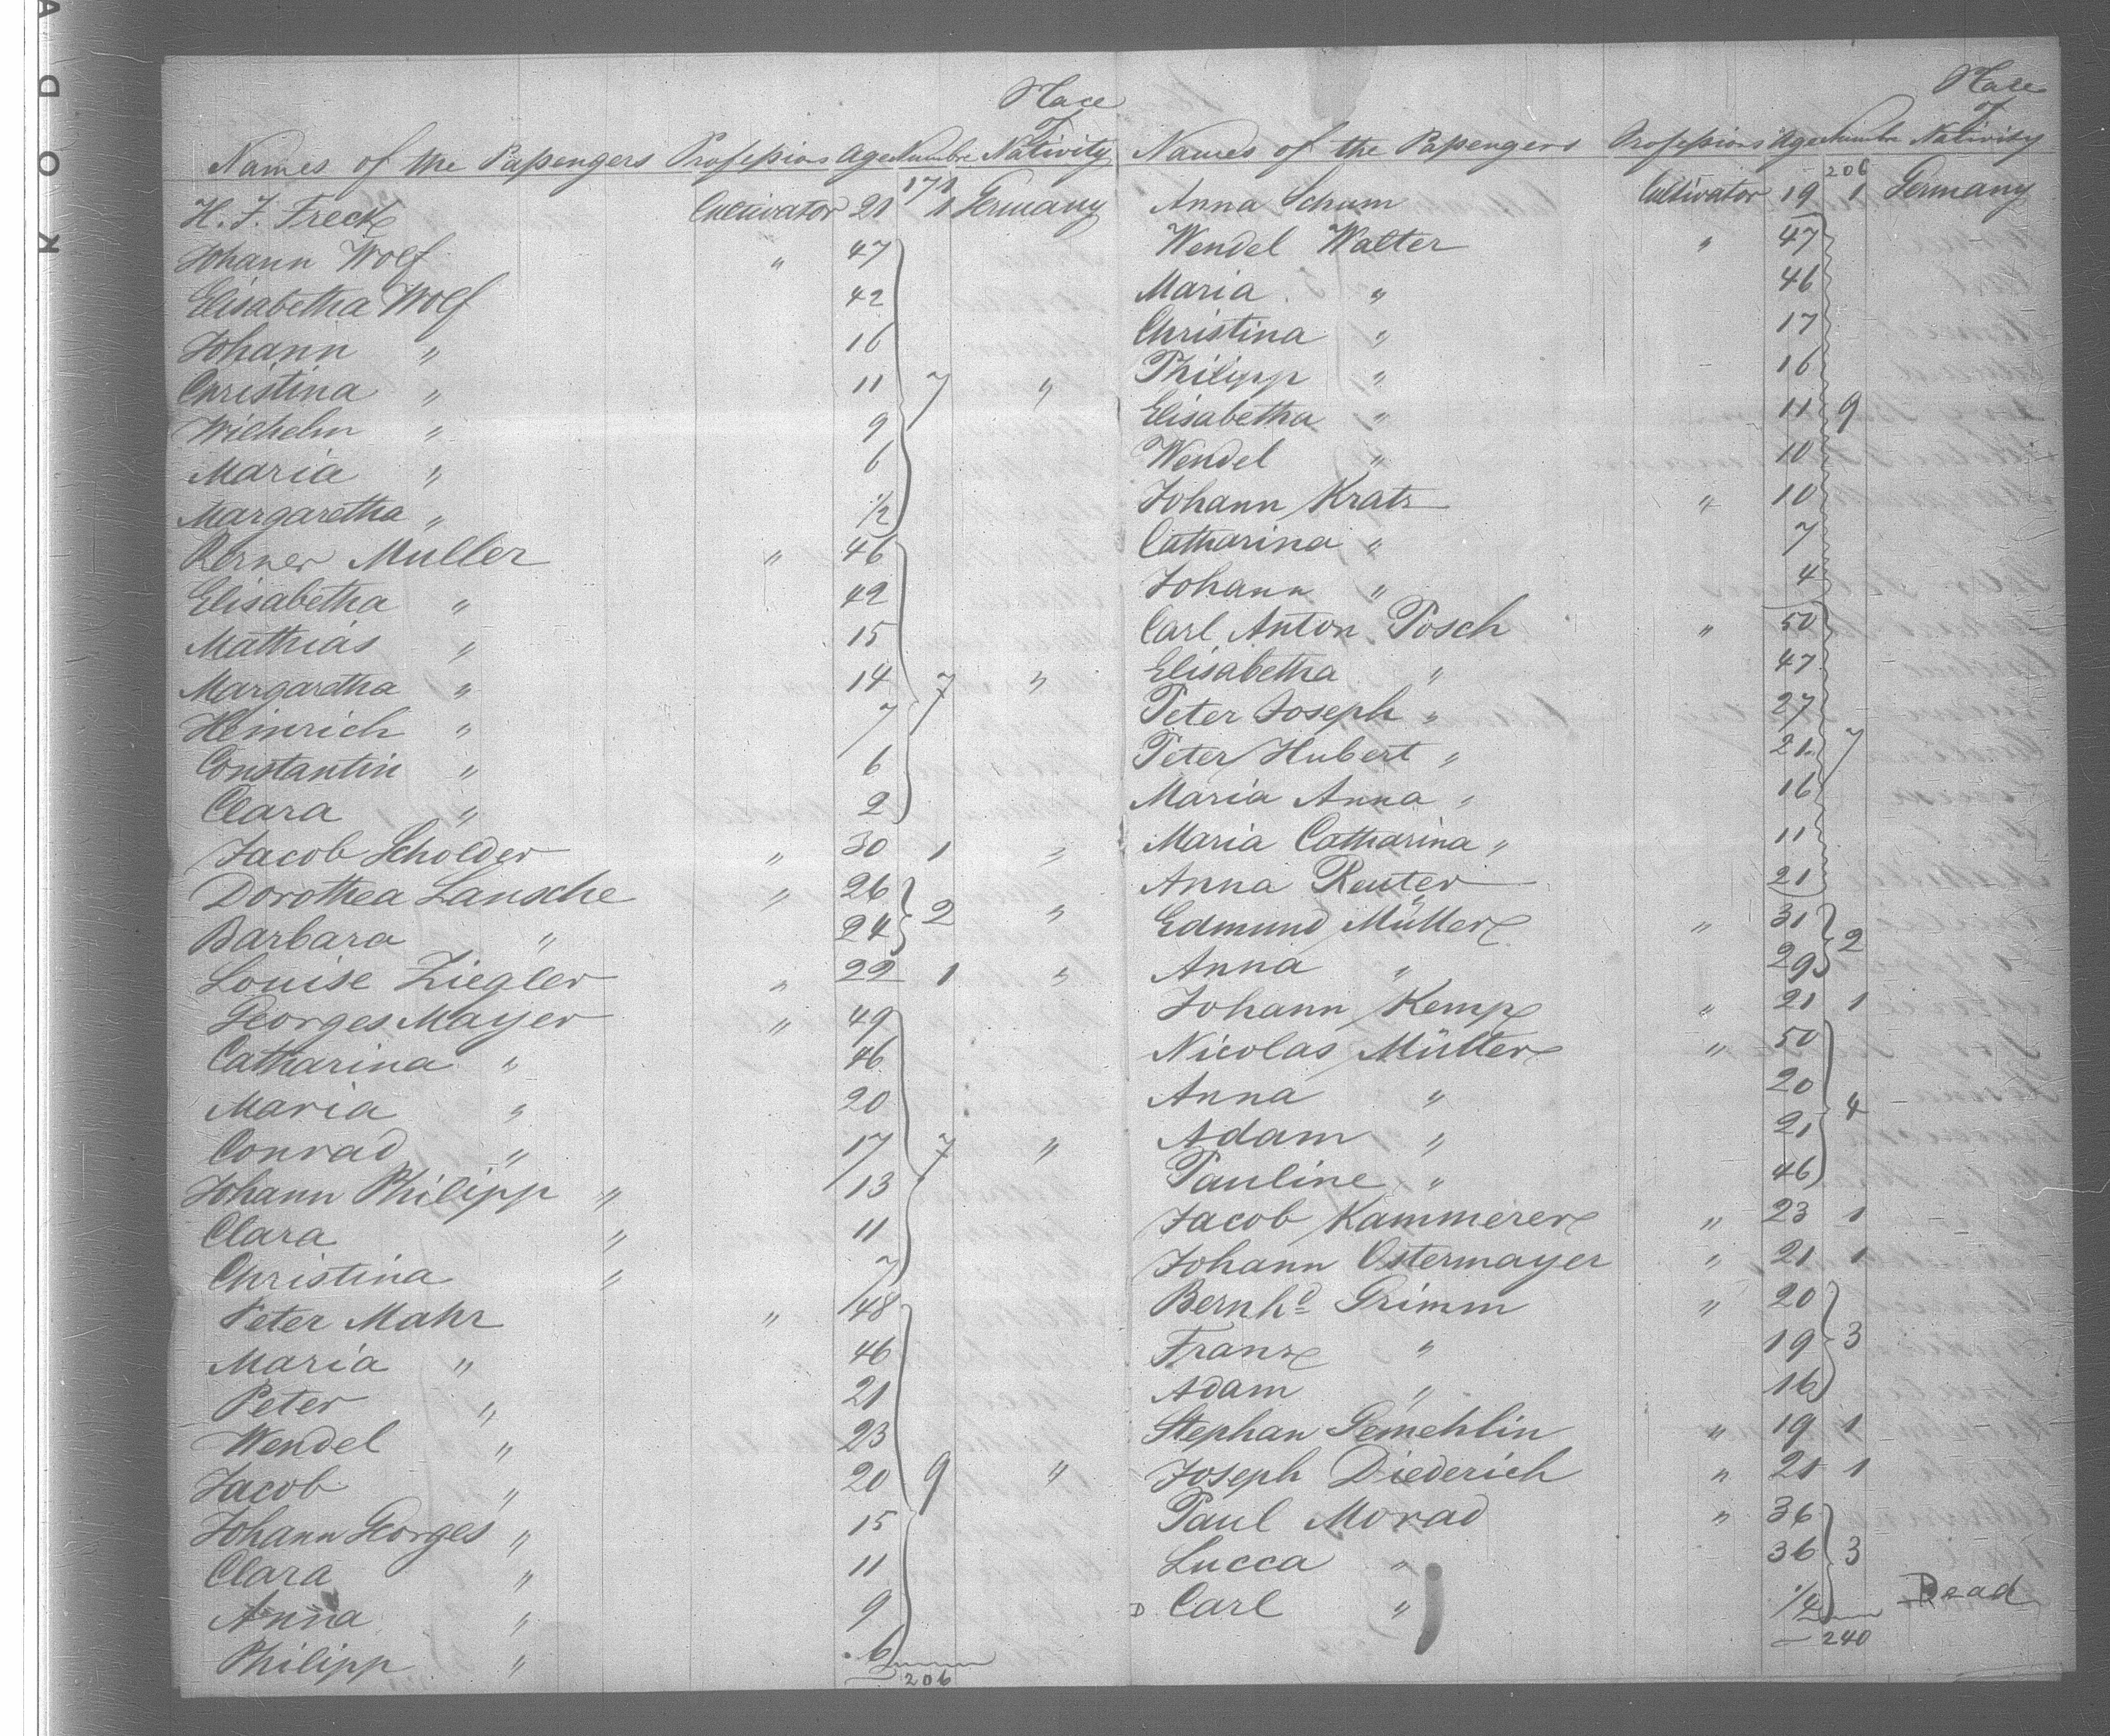 Place
of
Names of the Passengers Professions Age Numbre Nativity
171
H. F. Freck Cultivator 21 1 Germany
Johann Wolf " 47
Elisabetha Wolf 42
Johann " 16
Christina " 11 7 "
Wilhelm " 9
Maria " 6
Margaretha " 1/2
Muller " 46
Elisabetha " 42
Mathias " 15
Margaretha " 14 7 "
Heinrich " 7
Constantin " 6
Clara " 2
Jacob Scholder " 30 1 "
Dorothea Lansche " 26
Barbara " 24 2 "
Louise Ziegler " 22 1 "
Georges Mayer " 49
Catharina " 46
Maria " 20
Conrad " 17 7 "
Johann Philipp " 13
Clara " 11
Christina " 7
Peter Mahr " 48
Maria " 46
Peter " 21
Wendel " 23
Jacob " 20 9 "
Johann Georges " 15
Clara " 11
Anna " 9
Philipp " 6
206
Place
of
Names of the Passengers Professions Age Numbre Nativity
206
Anna Schum Cultivator 19 1 Germany
Wendel Walter " 47
Maria " 46
Christina " 17
Philipp " 16
Elisabetha " 11 9
Wendel " 10
Johann Kratz " 10
Catharina " 7
Johann " 4
Carl Anton Posch " 50
Elisabetha " 47
Peter Joseph " 27
Peter Hubert " 21 7
Maria Anna " 16
Maria Catharina " 11
Anna Reuter 21
Edmund Müller " 31
Anna " 29 2
Johann Kemp " 21 1
Nicolas Müller " 50
Anna " 20
Adam " 21 4
Pauline " 46
Jacob Kammerer " 23 1
Johann Ostermayer " 21 1
Bernhd Grimm " 20
Franz " 19 3
Adam " 16
Stephan Gemehlin " 19 1
Joseph Diederich " 21 1
Paul Morad " 36
Lucca " 36 3
D Carl " Dead
240